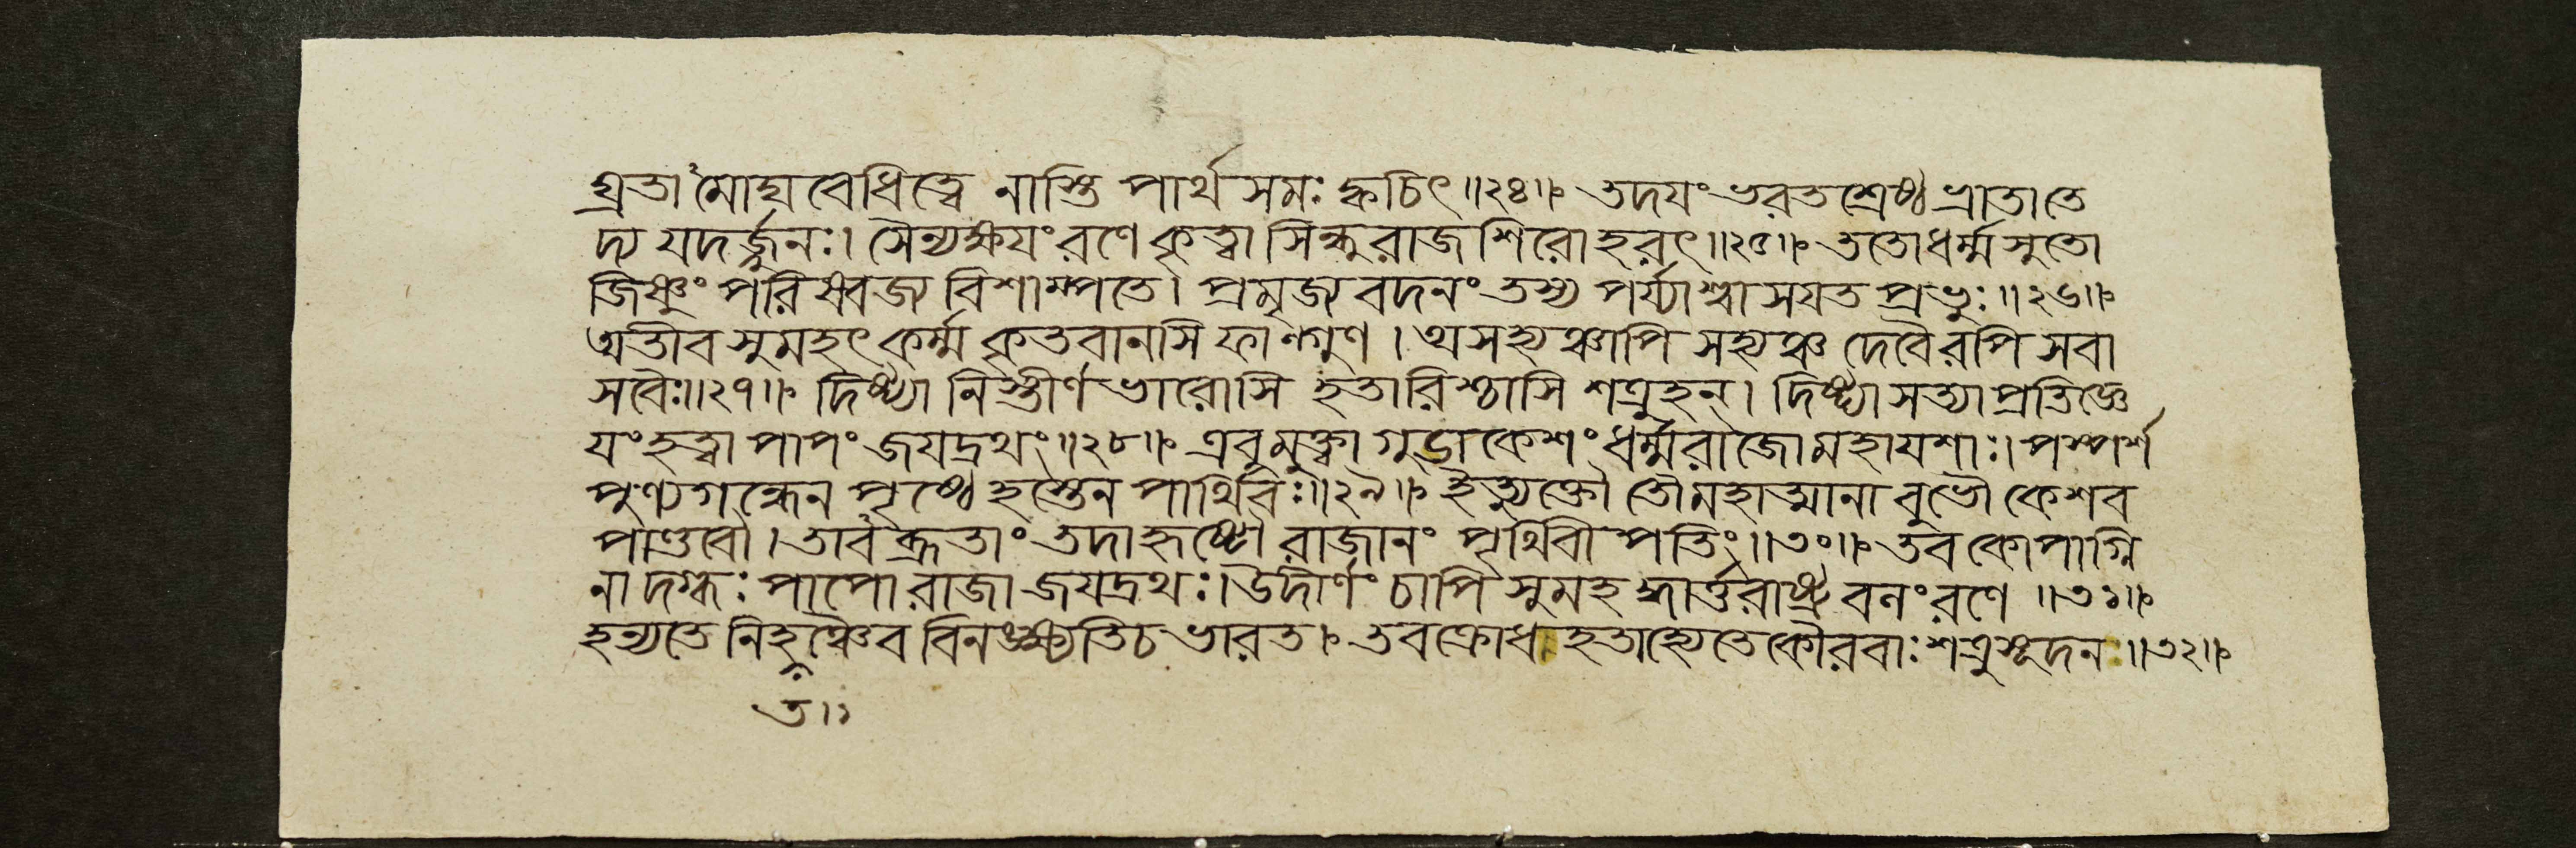 ঘ্রতা মোঘ বেধিত্বে নাস্তি পার্থ সমঃ ক্বচিৎ॥২৪॥ তদযং ভরতশ্রেষ্ঠ ভ্রাতাতে
দ্য যদর্জ্জুনঃ। সৈন্যক্ষযং রণে কৃত্বা সিন্ধুরাজ শিরো হরৎ॥২৫॥ ততোধর্ম্ম সুতো
জিষ্ণুং পরিষ্বজ্য বিশাম্পতে। প্রমৃজ্য বদনং তস্য পর্য্যাশ্বাসযত প্রভুঃ॥২৬॥
অতীব সুমহৎ কর্ম্ম কৃতবানসি ফাল্গুণ। অসহ্যঞ্চাপি সহ্যঞ্চ দেবৈরপি সবা
সবৈঃ॥২৭॥ দিষ্ট্যা নিস্তীর্ণ ভারোসি হতারিশ্চাসি শত্রুহন্। দিষ্ট্যা সত্যা প্রতিজ্ঞে
যং হত্বা পাপং জযদ্রথং॥২৮॥ এবমুক্ত্বা গুড়াকেশং ধর্ম্মরাজো মহাযশাঃ। পস্পর্শ
পুণ্যগন্ধেন পৃষ্ঠে হস্তেন পার্থিবঃ॥২৯॥ ইত্যুক্তৌ তৌ মহাত্মানা বুভৌ কেশব
পাণ্ডবৌ। তাবব্রূতাং তদা হৃষ্টৌ রাজানং পৃথিবী পতিং॥৩০॥ তব কোপাগ্নি
না দগ্ধঃ পাপো রাজা জযদ্রথঃ। উদীর্ণং চাপি সুমহ দ্ধার্ত্তরাষ্ট্র বনং রণে॥৩১॥
হন্যতে নিহতঞ্চৈব বিনঙ্ক্ষ্যতি চ ভারত। তব ক্রোধা হতাহ্যেতে কৌরবাঃ শত্রুসূদনঃ॥৩২॥
ত॥